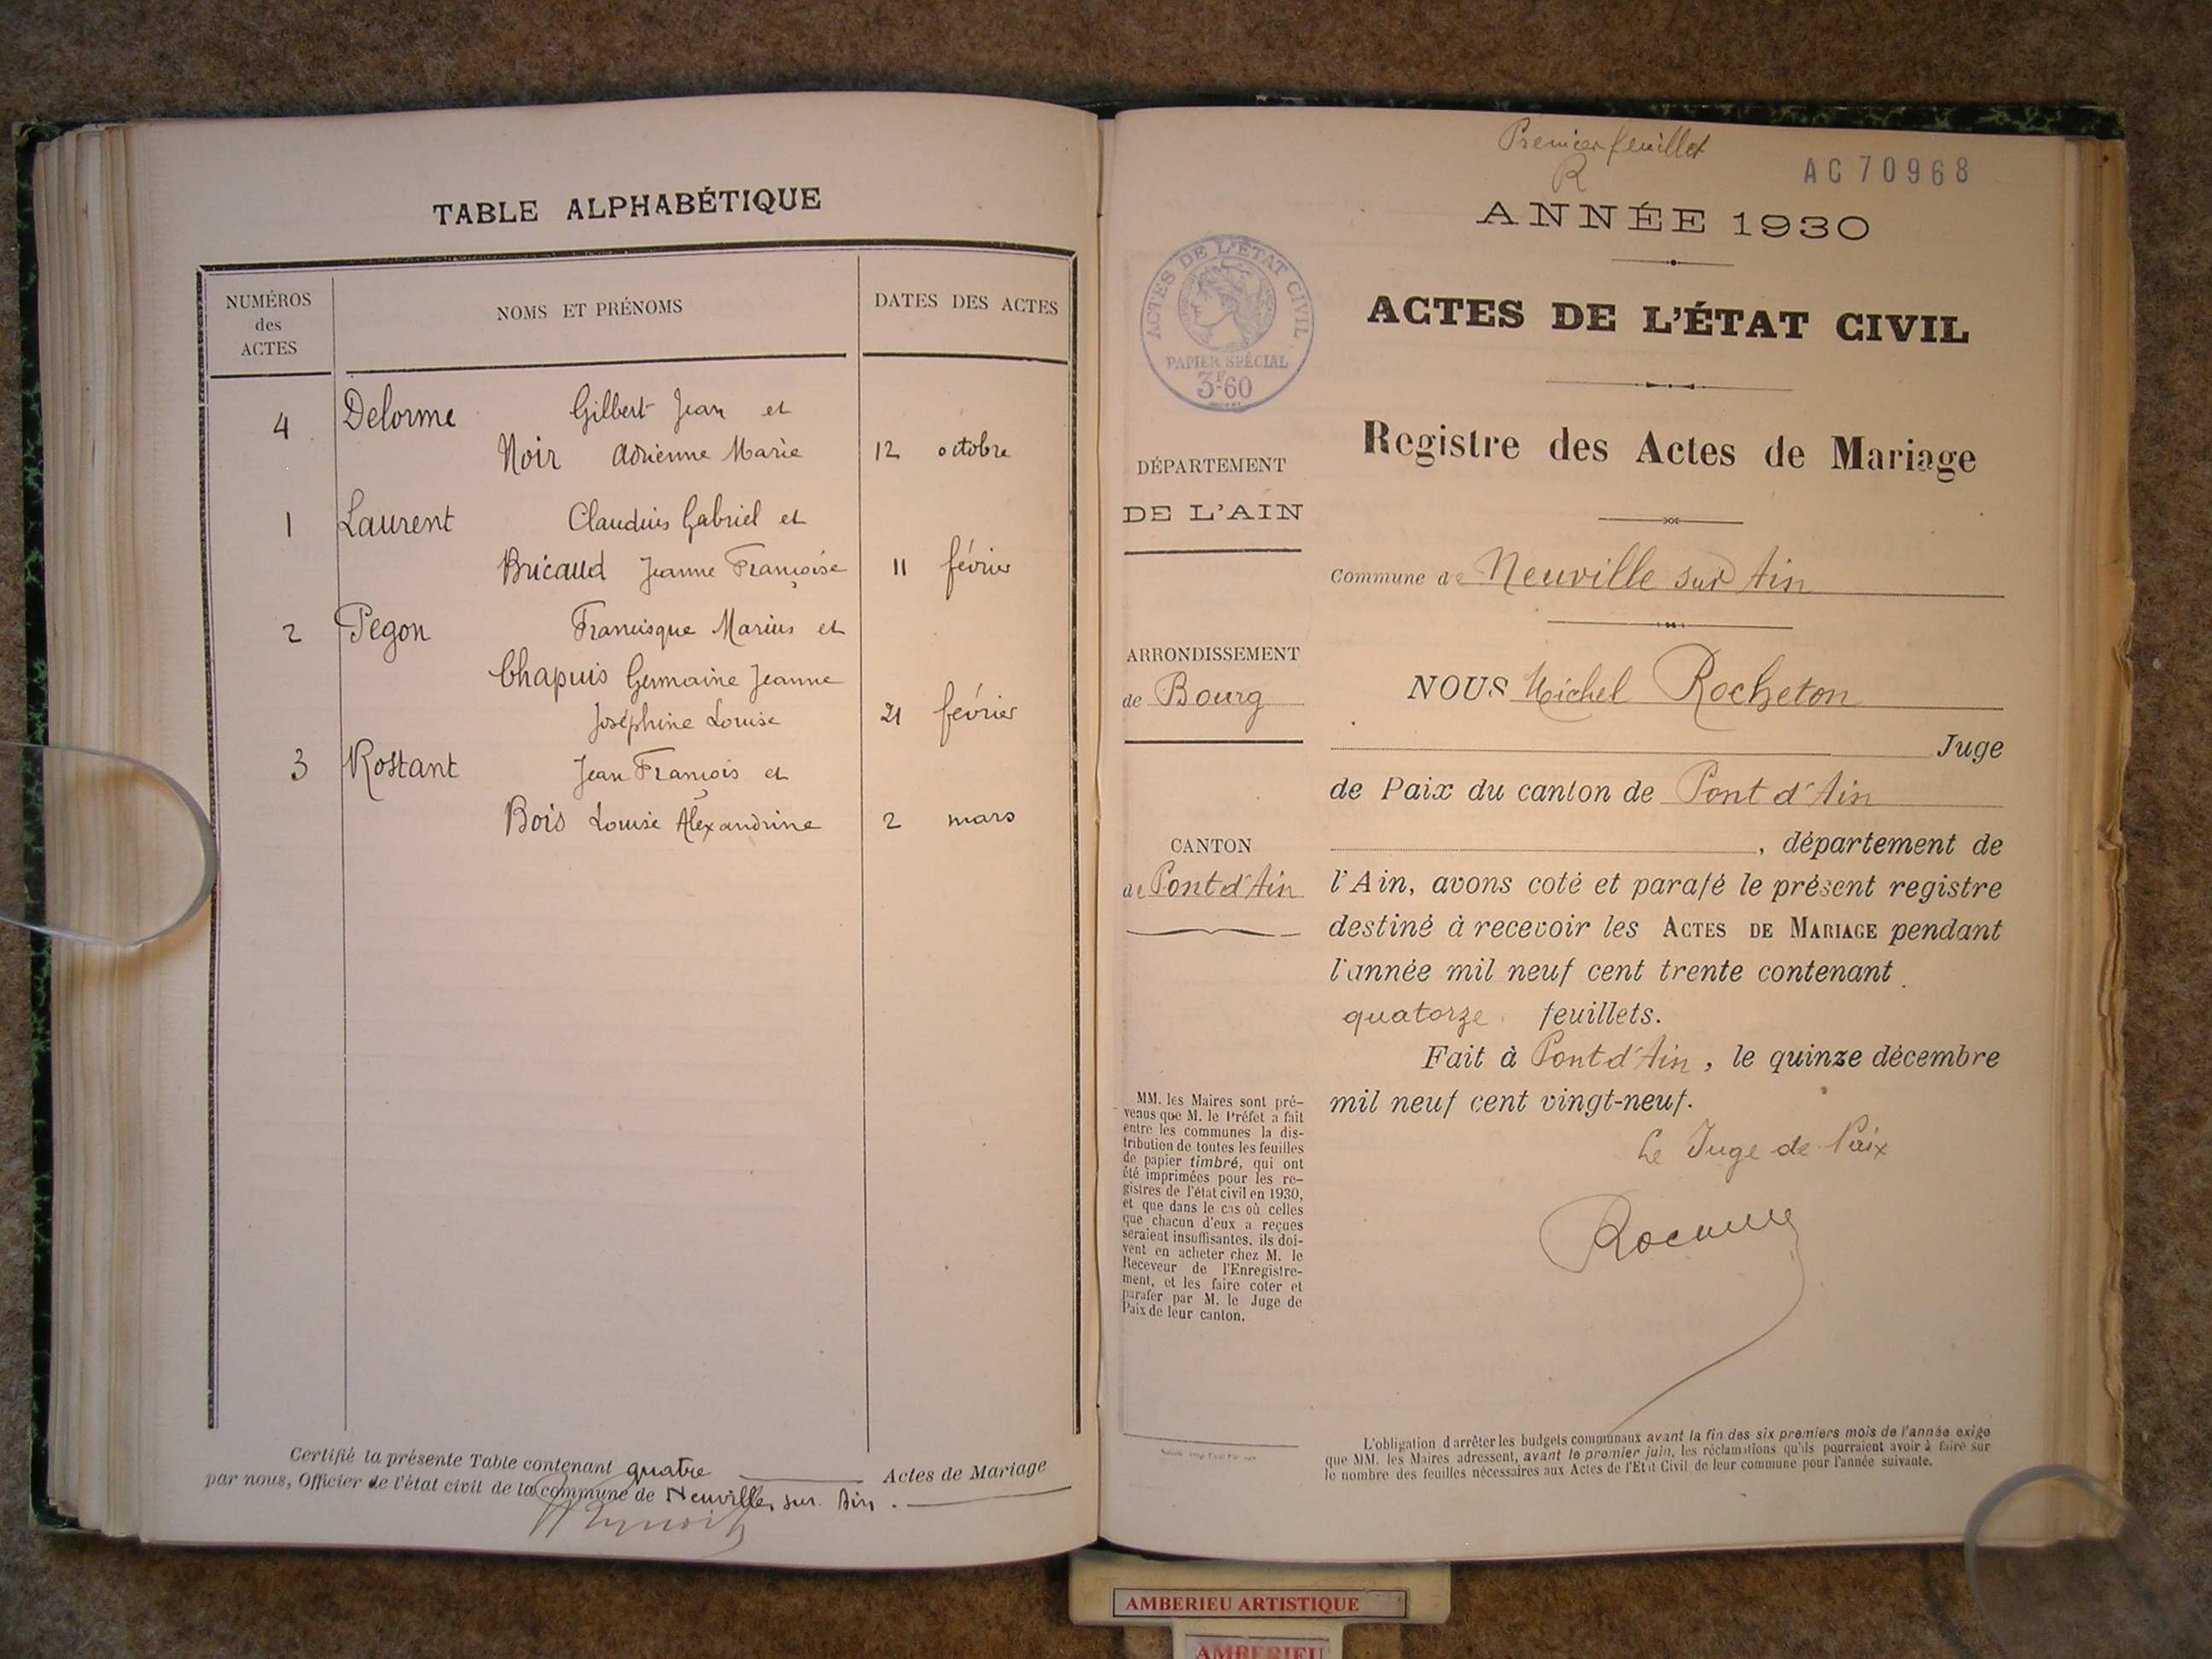 TABLE ALPHABÉTIQUE
NUMÉROS
des
ACTES
NOMS ET PRÉNOMS
DATES DES ACTES
4 Delorme Gilbert Jean et
Noir Adrienne Marie 12 octobre
1 Laurent Claudius Gabriel et
Bricaud Jeanne Françoise 11 février
2 Pegon Francisque Marius et
Chapuis Germaine Jeanne
Joséphine Louise 21 février
3 Rostant Jean François et
Bois Louise Alexandrine 2 mars
Certifié la présente Table contenant quatre Actes de Mariage
par nous, Officier de l'état civil de la commune de Neuville sur Ain.
Premier feuillet
R
AC 70968
ANNÉE 1930
ACTES DE L'ÉTAT CIVIL
PAPIER SPÉCIAL
3F60
ACTES DE L'ÉTAT CIVIL
Registre des Actes de Mariage
DÉPARTEMENT
DE L'AIN
Commune de Neuville sur Ain
ARRONDISSEMENT
de Bourg
NOUS Michel Rocheton
Juge
de Paix du canton de Pont d'Ain
CANTON
de Pont d'Ain
, département de
l'Ain, avons coté et parafé le présent registre
destiné à recevoir les ACTES DE MARIAGE pendant
l'année mil neuf cent trente contenant
quatorze feuillets.
Fait à Pont d'Ain, le quinze décembre
mil neuf cent vingt-neuf.
Le Juge de Paix
MM. les Maires sont pré-
venus que M. le Préfet a fait
entre les communes la dis-
tribution de toutes les feuilles
de papier timbré, qui ont
été imprimées pour les re-
gistres de l'état civil en 1930,
et que dans le cas où celles
que chacun d'eux a reçues
seraient insuffisantes, ils doi-
vent en acheter chez M. le
Receveur de l'Enregistre-
ment, et les faire coter et
parafer par M. le Juge de
Paix de leur canton.
L'obligation d'arrêter les budgets communaux avant la fin des six premiers mois de l'année exige
que MM. les Maires adressent, avant le premier juin, les réclamations qu'ils pourraient avoir à faire sur
le nombre des feuilles nécessaires aux Actes de l'Etat Civil de leur commune pour l'année suivante.
AMBERIEU ARTISTIQUE
AMBERIEU